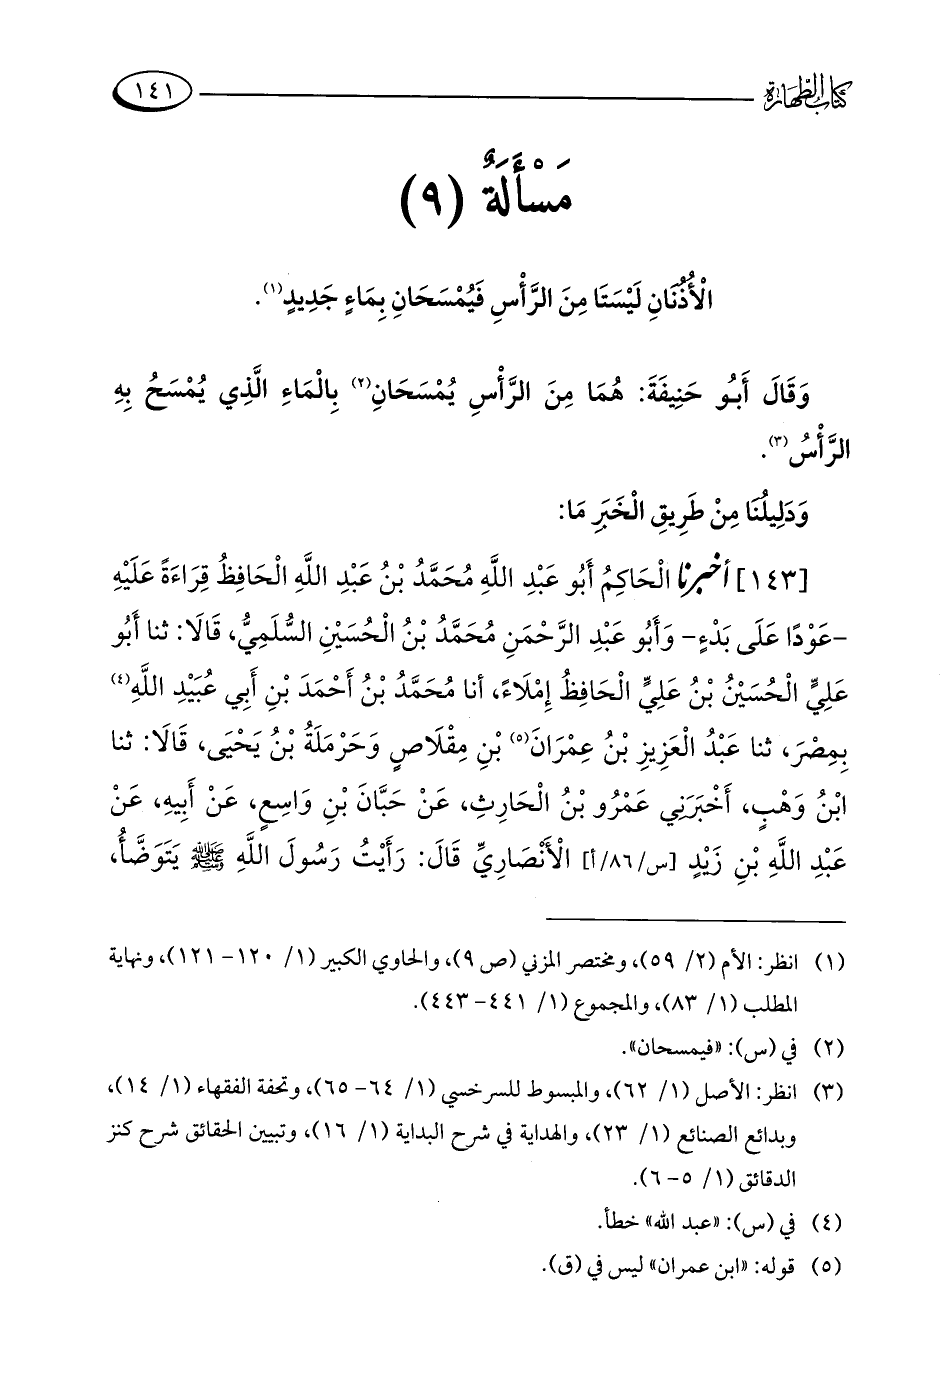 كتاب الطهارة ١٤١
مَسْأَلَةٌ (٩)
الْأُذُنَانِ لَيْسَتَا مِنَ الرَّأْسِ فَيُمْسَحَانِ بِمَاءٍ جَدِيدٍ(١).
وَقَالَ أَبُو حَنِيفَةَ: هُمَا مِنَ الرَّأْسِ يُمْسَحَانِ(٢) بِالْمَاءِ الَّذِي يُمْسَحُ بِهِ
الرَّأْسُ(٣).
وَدَلِيلُنَا مِنْ طَرِيقِ الْخَبَرِ مَا:
[١٤٣] أخبرنا الْحَاكِمُ أَبُو عَبْدِ اللَّهِ مُحَمَّدُ بْنُ عَبْدِ اللَّهِ الْحَافِظُ قِرَاءَةً عَلَيْهِ
-عَوْدًا عَلَى بَدْءٍ- وَأَبُو عَبْدِ الرَّحْمَنِ مُحَمَّدُ بْنُ الْحُسَيْنِ السُّلَمِيُّ، قَالَا: ثنا أَبُو
عَلِيٍّ الْحُسَيْنُ بْنُ عَلِيٍّ الْحَافِظُ إِمْلَاءً، أنا مُحَمَّدُ بْنُ أَحْمَدَ بْنِ أَبِي عُبَيْدِ اللَّهِ(٤)
بِمِصْرَ، ثنا عَبْدُ الْعَزِيزِ بْنُ عِمْرَانَ(٥) بْنِ مِقْلَاصٍ وَحَرْمَلَةُ بْنُ يَحْيَى، قَالَا: ثنا
ابْنُ وَهْبٍ، أَخْبَرَنِي عَمْرُو بْنُ الْحَارِثِ، عَنْ حَبَّانَ بْنِ وَاسِعٍ، عَنْ أَبِيهِ، عَنْ
عَبْدِ اللَّهِ بْنِ زَيْدٍ [س/٨٦/أ] الْأَنْصَارِيِّ قَالَ: رَأَيْتُ رَسُولَ اللَّهِ ﷺ يَتَوَضَّأُ،
(١) انظر: الأم (٢/ ٥٩)، ومختصر المزني (ص ٩)، والحاوي الكبير (١/ ١٢٠- ١٢١)، ونهاية
المطلب (١/ ٨٣)، والمجموع (١/ ٤٤١- ٤٤٣).
(٢) في (س): «فيمسحان».
(٣) انظر: الأصل (١/ ٦٢)، والمبسوط للسرخسي (١/ ٦٤- ٦٥)، وتحفة الفقهاء (١/ ١٤)،
وبدائع الصنائع (١/ ٢٣)، والهداية في شرح البداية (١/ ١٦)، وتبيين الحقائق شرح كنز
الدقائق (١/ ٥- ٦).
(٤) في (س): «عبد الله» خطأ.
(٥) قوله: «ابن عمران» ليس في (ق).